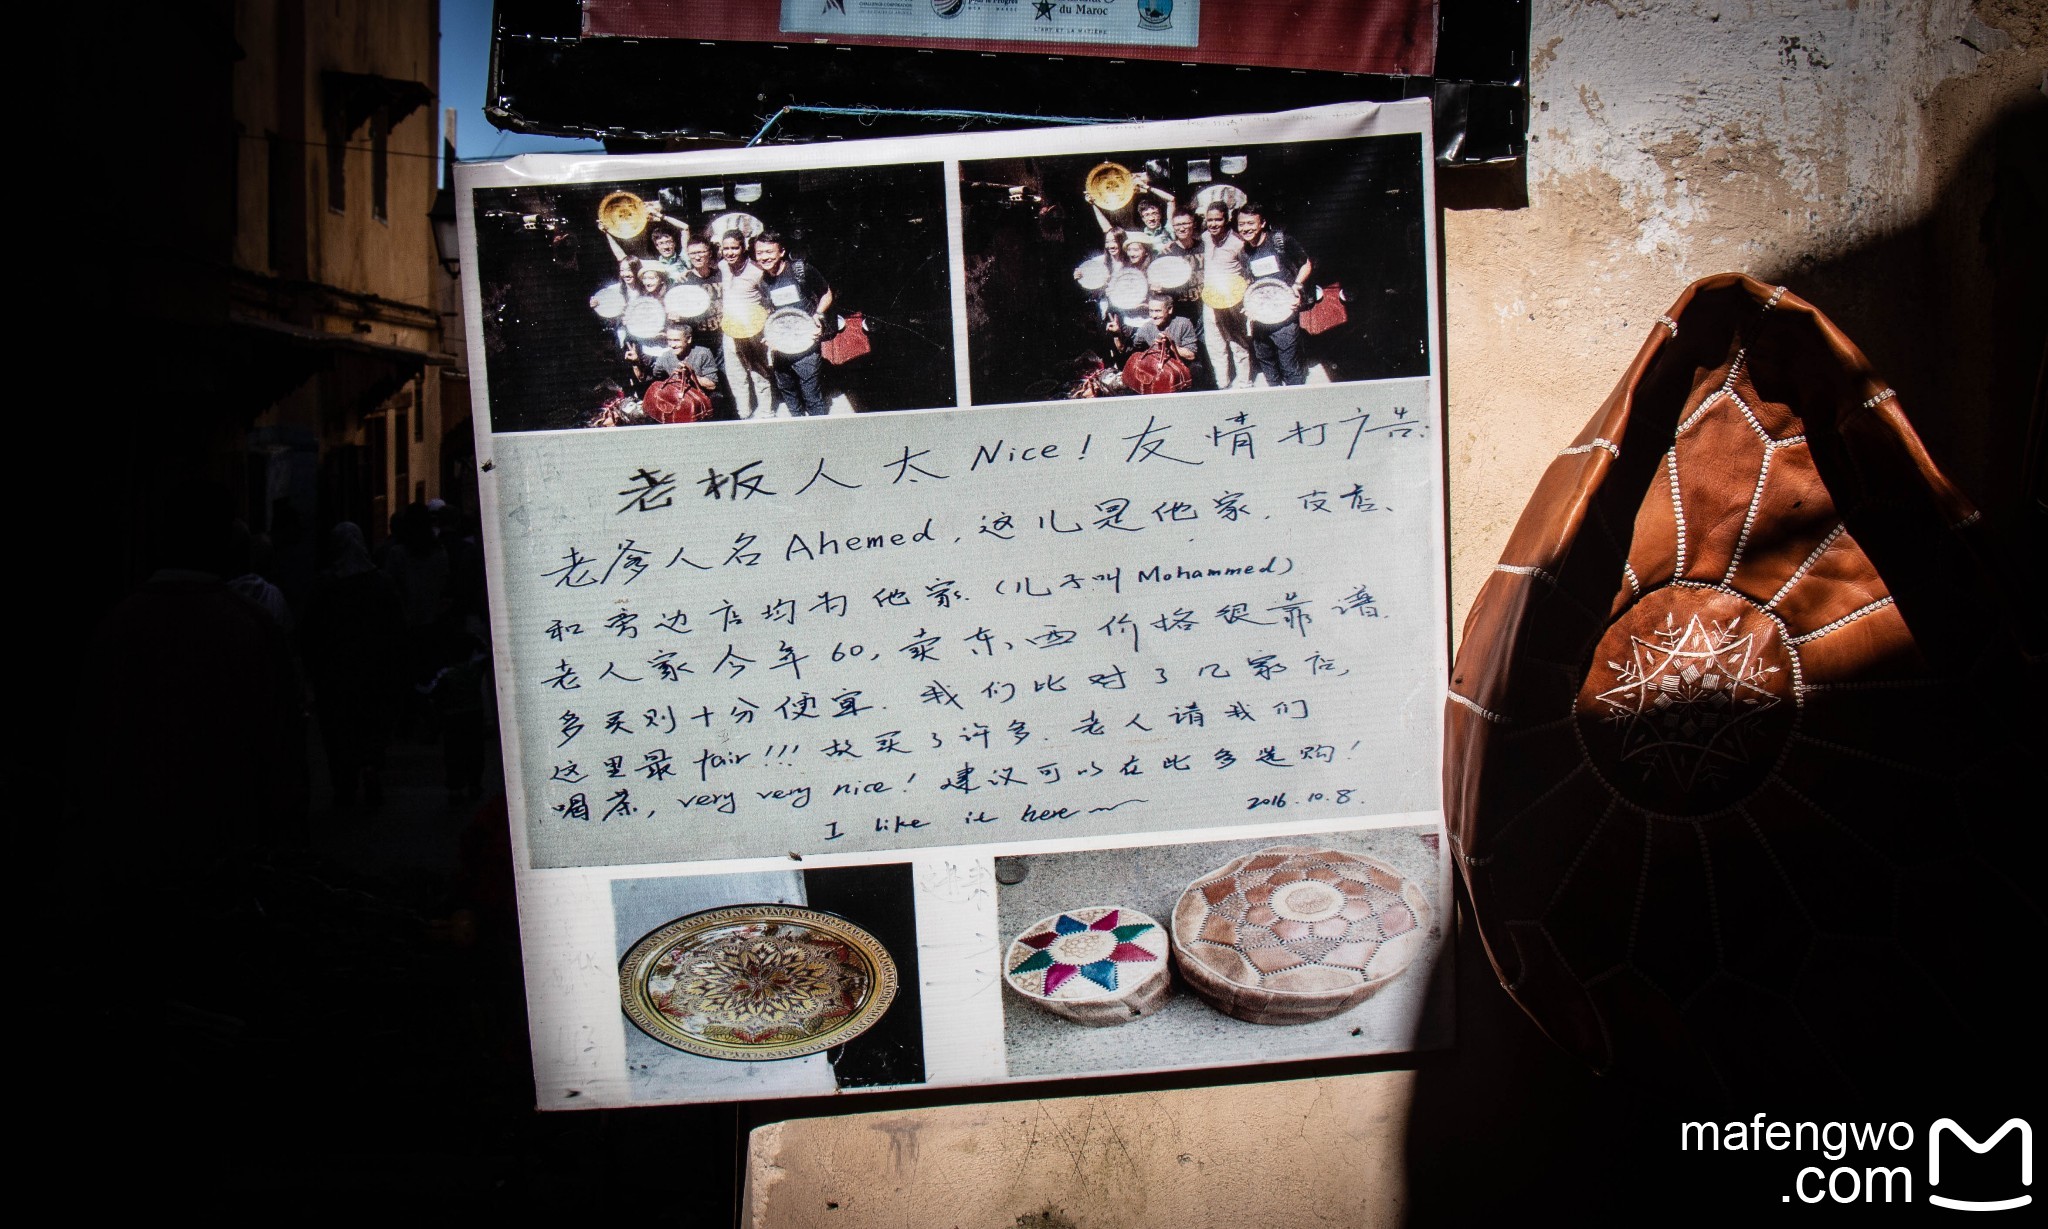 du Maroc
L'ART ET LA MATIÈRE
老板人太Nice！友情打广告：
老爹人名Ahemed，这儿是他家．皮店、
和旁边店均为他家．（儿子叫Mohammed）
老人家今年60，卖东西价格很靠谱．
多买则十分便宜．我们比对了几家店，
这里最fair!!!故买了许多．老人请我们
喝茶，very very nice！建议可以在此多选购！
I like it here 2016.10.8.
mafengwo
.com